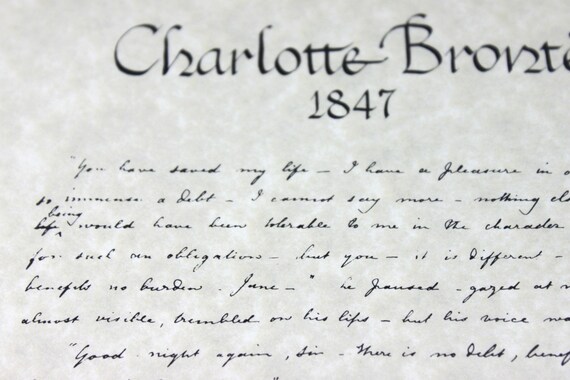 Charlotte Brontë
1847
"You have saved my life – I have a pleasure in
so immense a debt – I cannot say more – nothing
being
life would have been tolerable to me in the character
for such an obligation – but you – it is different –
benefits no burden. Jane – " he paused – gazed at
almost visible, trembled on his lips – but his voice
"Good night again, sir – there is no debt,